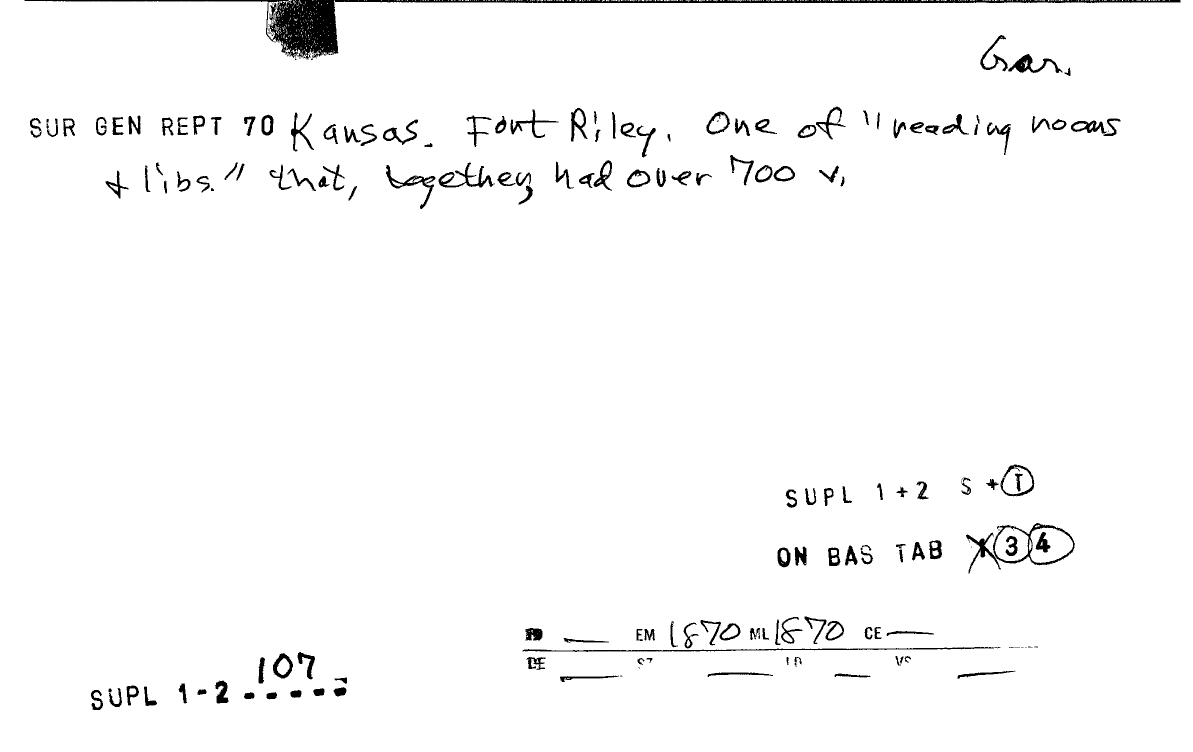 Gar.
SUR GEN REPT 70 Kansas. Fort Riley. One of "reading rooms
+ libs." that, together, had over 700 v.
SUPL 1+2 S + I
ON BAS TAB X 3 4
EM 1870 ML 1870 CE —
DE ST LO VS
107
SUPL 1-2 -----